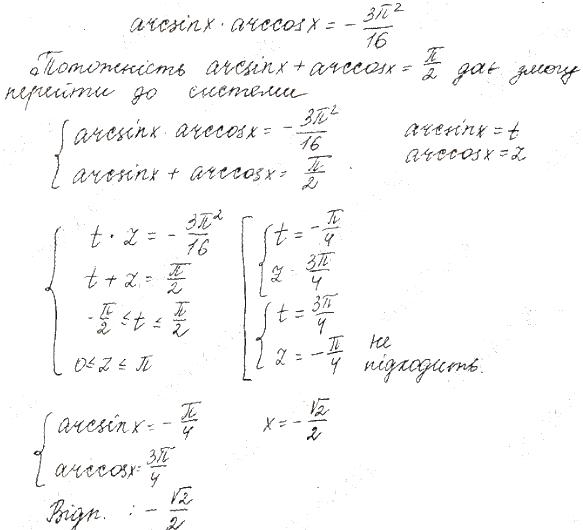 arcsinx · arccosx = - 3π²/16
Тотожність arcsinx + arccosx = π/2 дає змогу
перейти до системи
{ arcsinx · arccosx = - 3π²/16
arcsinx + arccosx = π/2 .
arcsinx = t
arccosx = z
{ t · z = - 3π²/16
t + z = π/2
-π/2 ≤ t ≤ π/2
0 ≤ z ≤ π
[ { t = -π/4
z = 3π/4
{ t = 3π/4
z = -π/4 не
підходить.
{ arcsinx = - π/4
arccosx = 3π/4
x = - √2/2
Відп. : - √2/2